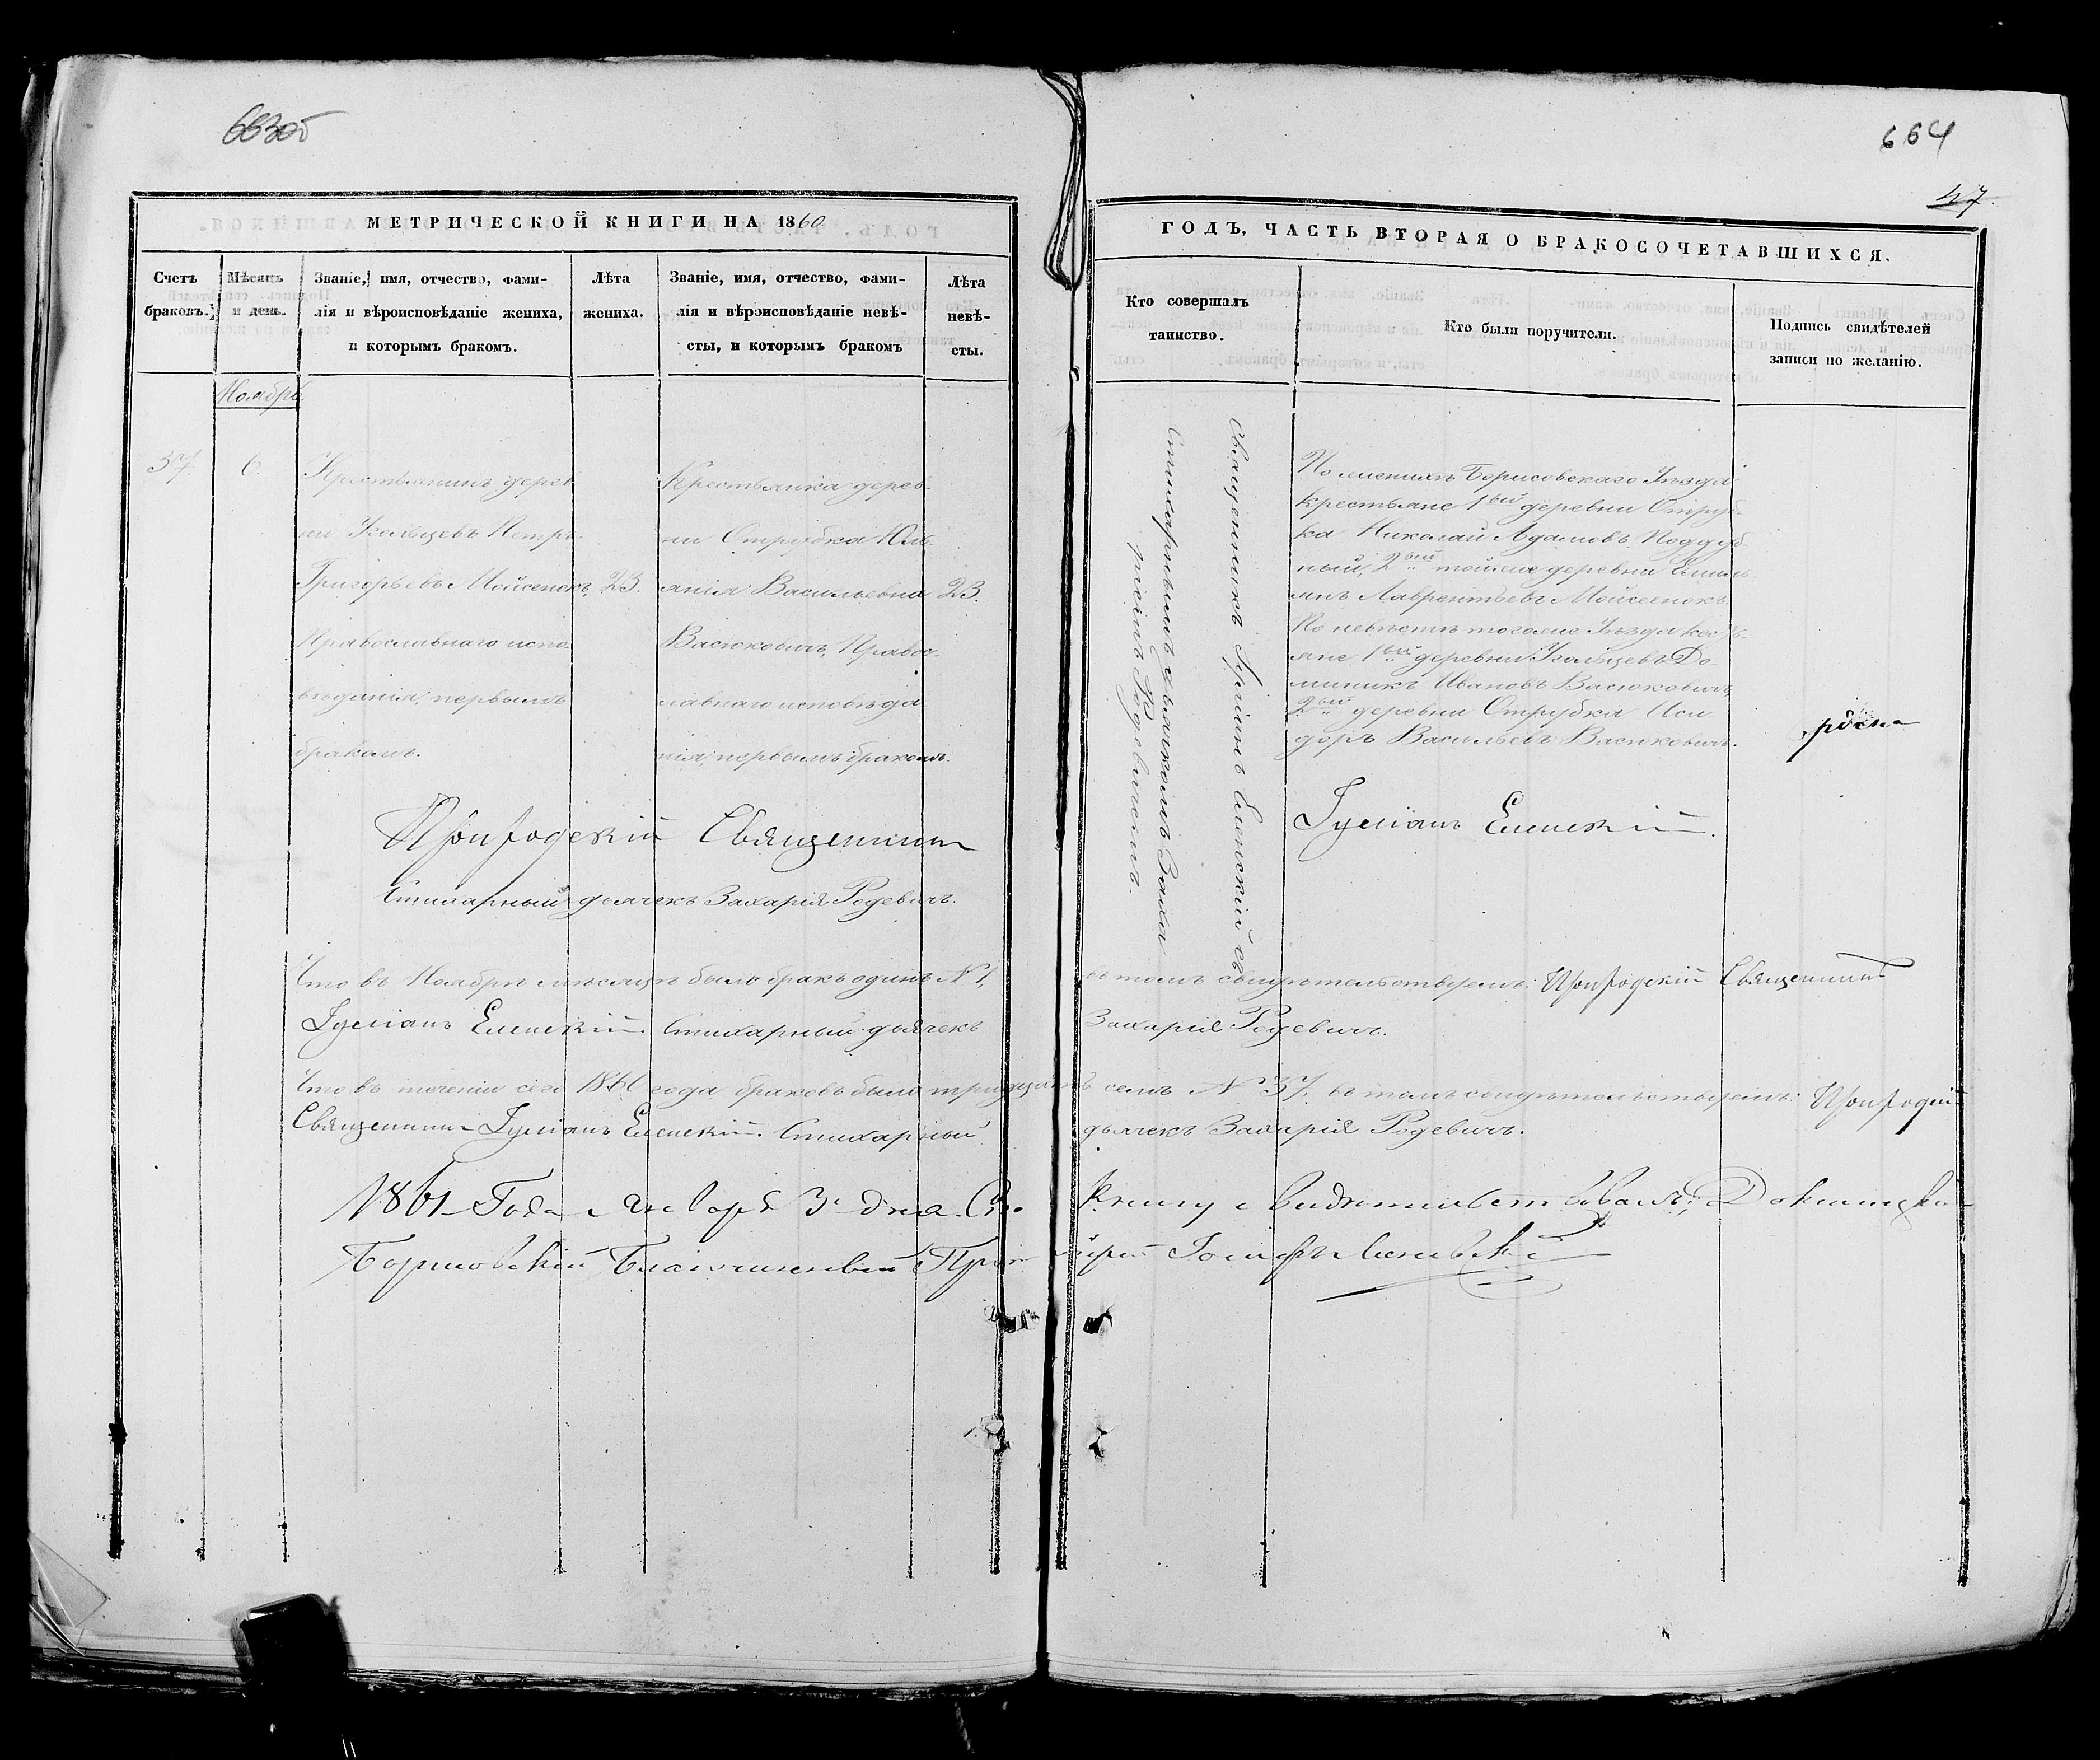 663об
664
47.
МЕТРИЧЕСКОЙ КНИГИ НА 1860
ГОДЪ, ЧАСТЬ ВТОРАЯ О БРАКОСОЧЕТАВШИХСЯ.
Счетъ
браковъ.
Мѣсяцъ
и день.
Званіе, имя, отчество, фами-
лія и вѣроисповѣданіе жениха,
и которымъ бракомъ.
Лѣта
жениха.
Званіе, имя, отчество, фами-
лія и вѣроисповѣданіе невѣ-
сты, и которымъ бракомъ
Лѣта
невѣ-
сты.
Кто совершалъ
таинство.
Кто были поручители.
Подпись свидѣтелей
записи по желанію.
Ноябрь.
37.
6.
Крестьянинъ дерев
ни Угольцевъ Петръ
Григорьевъ Мойсенокъ,
Православнаго испо-
вѣданія, первымъ
бракомъ.
23.
Крестьянка дерев-
ни Отрубка Юли-
янія Васильевна
Васюковичъ, Правос-
лавнаго исповѣда
нія, первымъ бракомъ.
23.
Священникъ Іуліанъ Еленскій съ
стихарнымъ дьячкомъ Заха
ріемъ Родевичемъ.
По женихѣ Борисовскаго Уѣзда
крестьяне 1вый деревни Отруб-
ка Николай Адамовъ Поддуб-
ный, 2вый тойже деревни
Лаврентьевъ Мойсеенокъ.
По невѣстѣ тогоже Уѣзда кресть-
яне 1вый деревни Угольцевъ До-
миникъ Ивановъ Васюковичъ
2вый деревни Отрубка Иси
доръ Васильевъ Васюковичъ.
Священникъ
Іуліанъ Еленскій.
Стихарный дьячекъ Захарія Родевичъ.
Что въ Ноябрѣ мѣсяцѣ было бракъ одинъ № 1, въ томъ свидѣтельствуемъ: Священникъ
Іуліанъ Еленскій. Стихарный дьячекъ Захарія Родевичъ.
Что въ теченіи сего 1860 года браковъ было тридцать семь № 37, въ томъ свидѣтельствуемъ:
Священникъ Іуліанъ Еленскій. Стихарный дьячекъ Захарія Родевичъ.
1861 Года Января 3 дня. Сію Книгу свидѣтельствовалъ; Докшицко-
Борисовскій Благочинный Протоіерей Іосифъ